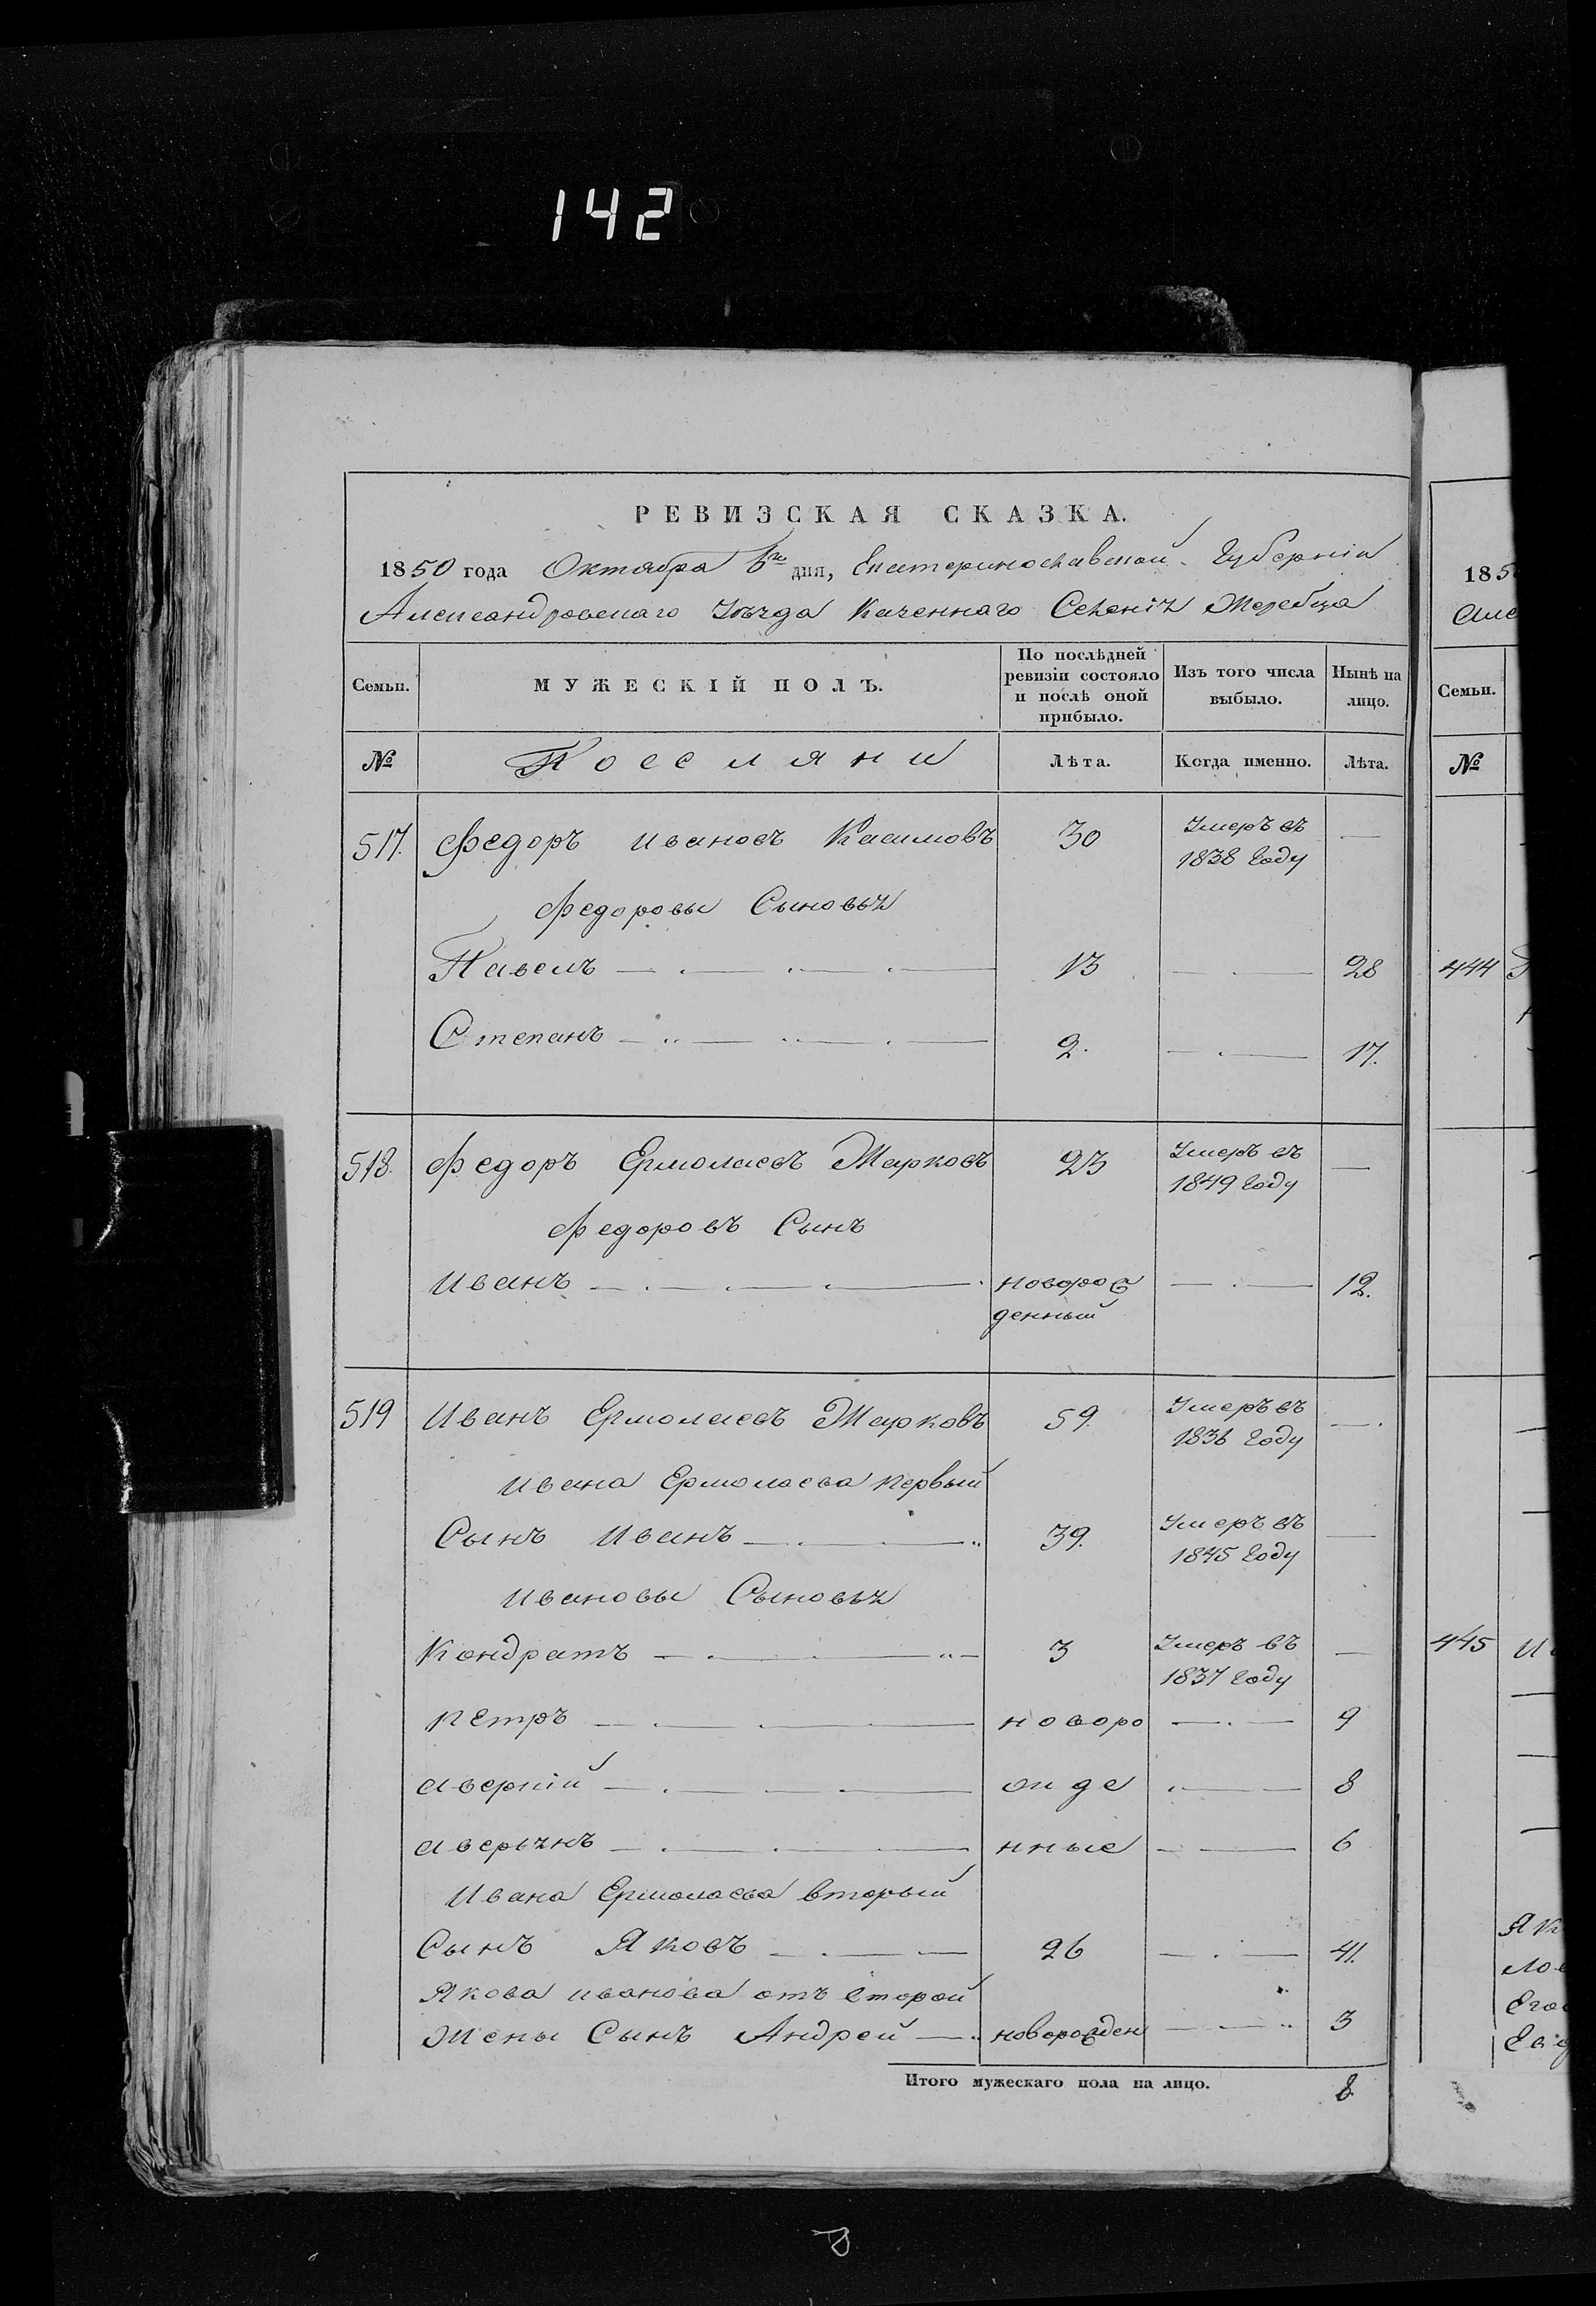 142
РЕВИЗСКАЯ СКАЗКА.
1850 года Октября 6го дня, Екатеринославской Губерніи
Александровскаго Уѣзда Казеннаго Селенія Жеребца
Семьи. МУЖЕСКІЙ ПОЛЪ. По послѣдней ревизіи состояло и послѣ оной прибыло. Изъ того числа выбыло. Нынѣ на лицо.
№ Поселяни Лѣта. Когда именно. Лѣта.
517. Федоръ Ивановъ Касимовъ 30 Умеръ въ 1838 Году —
Федоровы Сыновья
Павелъ 13 — 28
Степанъ 2. — 17.
518. Федоръ Ермолаевъ Жарковъ 23 Умеръ въ 1849 Году —
Федоровъ Сынъ
Иванъ новорож денный — 12.
519 Иванъ Ермолаевъ Жарковъ 59. Умеръ въ 1836 Году —
Ивана Ермолаева первый
Сынъ Иванъ 39. Умеръ въ 1845 Году —
Ивановы Сыновья
Кондратъ 3 Умеръ въ 1837 Году —
Петръ новоро — 9
Аверкій жде — 8
Аверьянъ нные — 6
Ивана Ермолаева вторый
Сынъ Яковъ 26 — 41.
Якова Иванова отъ второй
Жены Сынъ Андрей новорожден — 3
Итого мужескаго пола на лицо. 8.
185
Але
Семьи.
№
444
445 И
Як
Его